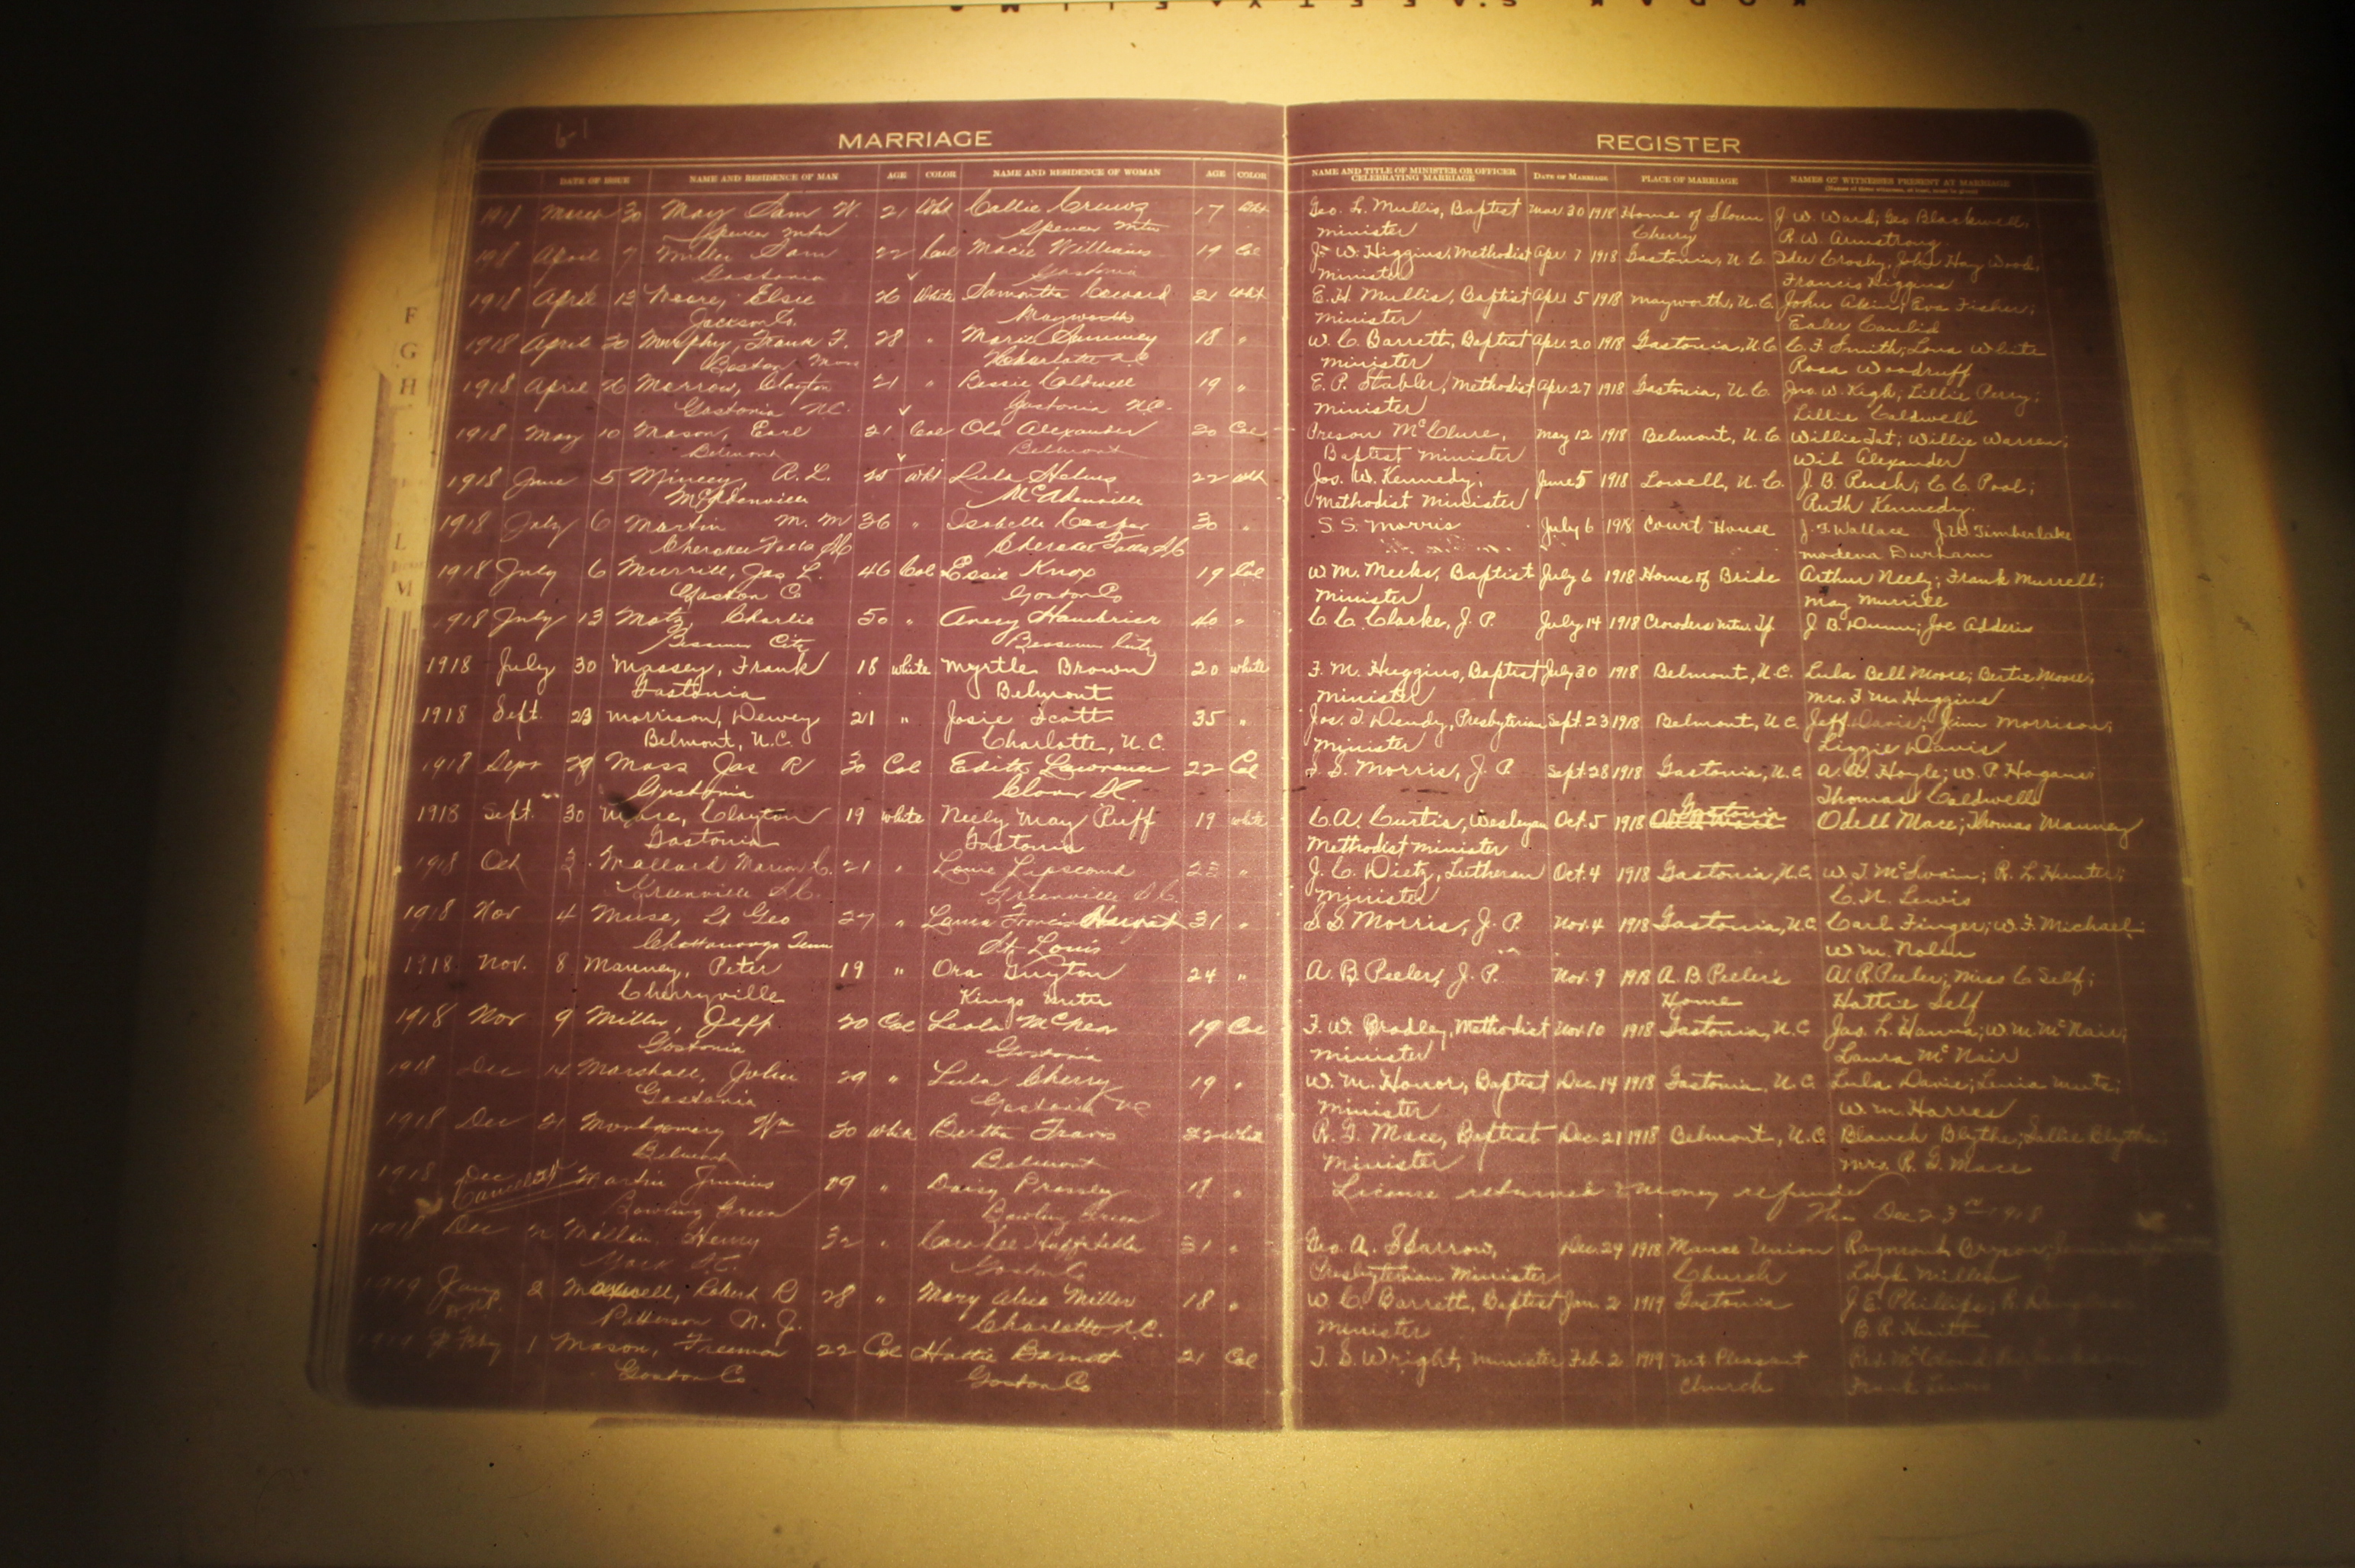 KODAK SAFETY FILM
MARRIAGE
REGISTER
DATE OF ISSUE NAME AND RESIDENCE OF MAN AGE COLOR NAME AND RESIDENCE OF WOMAN AGE COLOR NAME AND TITLE OF MINISTER OR OFFICER CELEBRATING MARRIAGE DATE OF MARRIAGE PLACE OF MARRIAGE NAMES OF WITNESSES PRESENT AT MARRIAGE
1918 March 30 May Sam W. 21 Wht Callie Crews 17 Wht Geo. L. Mullis, Baptist Mar 30 1918 Home of Sloan J. W. Ward; Geo Blackwell,
Spencer Mtn Spencer Mtn minister Cherry R. W. Armstrong
1918 April 7 Miller Sam 22 Col Macie Williams 19 Col J. W. Higgins, Methodist Apr 7 1918 Gastonia, N.C. Crosby, John Hay Wood,
Gastonia Gastonia minister Francis Higgins
1918 April 13 Moore, Elsie 26 White Samantha Coward 21 Wht E. H. Mullis, Baptist Apr. 5 1918 Mayworth, N.C. John Akin; Eva Fisher;
Jackson Co. Mayworth minister
1918 April 20 Murphy, Frank F. 28 " Marie Summey 18 " W. C. Barrett, Baptist Apr. 20 1918 Gastonia, N.C. C. F. Smith, Lona White
Boston Mass Charlotte N.C. minister Rosa Woodruff
1918 April 26 Morrow, Clayton 21 " Bessie Caldwell 19 " E. P. Stabler, Methodist Apr 27 1918 Gastonia, N.C. Jno. W. High; Lillie Perry;
Gastonia N.C. Gastonia N.C. minister Lillie Caldwell
1918 May 10 Mason, Earl 21 Col Ola Alexander 20 Col McClure, May 12 1918 Belmont, N.C. Willie Tat; Willie Warren;
Belmont Belmont Baptist minister Wil Alexander
1918 June 5 Mincey, R. L. 25 Wht Lula Helms 22 Wht Jos. W. Kennedy; June 5 1918 Lowell, N.C. J. B. Rush; C. C. Pool;
McAdenville McAdenville Methodist Minister Ruth Kennedy.
1918 July 6 Martin M. M 36 " Isabelle Casper 30 " S. S. Morris July 6 1918 Court House J. F. Wallace J. W. Timberlake
Cherokee Falls SC Cherokee Falls SC Modena Durham
1918 July 6 Murrill, Jas L. 46 Col Essie Knox 19 Col W. M. Meeks, Baptist July 6 1918 Home of Bride Arthur Neely; Frank Murrell;
Gaston C Gaston Co minister May Murrill
1918 July 13 Motz, Charlie 50 " Hambrick 40 " C. C. Clarke, J. P. July 14 1918 Crowders Mtn. Tp. J. B. Dunn; Joe
Bessemer City Bessemer City
1918 July 30 Massey, Frank 18 white Myrtle Brown 20 white F. M. Huggins, Baptist July 30 1918 Belmont, N.C. Lula Bell Moore; Bertie Moore;
Gastonia Belmont minister Mrs. F. M. Huggins
1918 Sept. 23 Morrison, Dewey 21 " Josie Scott 35 " Jas. T. Dendy, Presbyterian Sept. 23 1918 Belmont, N.C. Jeff Davis; Jim Morrison;
Belmont, N.C. Charlotte, N.C. minister Lizzie Davis
1918 Sept 28 Mass Jas R 30 Col Edith Lawrence 22 Col S. S. Morris, J. P. Sept. 28 1918 Gastonia, N.C. A. W. Hoyle; W. P. Hogans;
Gastonia Clover SC. Thomas Caldwell
1918 Sept. 30 Mace, Clayton 19 white Neely May Puff 19 white C. A. Curtis, Wesleyan Oct. 5 1918 Gastonia Odell Mace; Thomas Mauney
Gastonia Gastonia Methodist minister
1918 Oct 3 Mallard Marion C. 21 " Louie Lipscomb 23 " J. C. Dietz, Lutheran Oct. 4 1918 Gastonia, N.C. W. T. McSwain; R. L. Hunter;
Greenville S.C. Greenville S.C. minister C. N. Lewis
1918 Nov 4 Muse, Lt Geo 27 " Francis 31 " S S Morris, J. P. Nov. 4 1918 Gastonia, N.C. Carl Finger; W. F. Michael
Chattanooga Tenn St Louis W. M. Nolen
1918 Nov. 8 Mauney, Peter 19 " Ora Guyton 24 " A. B. Peeler, J. P. Nov. 9 1918 A. B. Peeler's A. R. Peeler; Miss C Self;
Cherryville Kings Mtn Home Hattie Self
1918 Nov 9 Miller, Jeff 20 Col Leola 19 Col F. W. Bradley, Methodist Nov 10 1918 Gastonia, N.C Jas. L. Hanna; W. M. McNair,
Gastonia Gastonia minister Laura McNair
1918 Dec 14 Marshall, John 29 " Lula Cherry 19 " W. M. Honor, Baptist Dec. 14 1918 Gastonia, N.C. Lula Davis;
Gastonia Gastonia NC minister W. M. Harres
1918 Dec 21 Montgomery Wm 30 White Bertha Travis 22 White R. G. Mace, Baptist Dec. 21 1918 Belmont, N.C. Blanch Blythe; Sallie Blythe;
Belmont Belmont minister Mrs. R. G. Mace
1918 Dec 21 Martin Junius 19 " Daisy Pressley 18 " License returned & money refunded
Cancelled Bowling Green Bowling Green This Dec 23rd 1918
1918 Dec Millen Henry 32 " Cora Lee Huffstetler 31 " Geo. A. Sparrow, Dec. 24 1918 Manse Union Raymond Bryson;
York SC. Gaston Co Presbyterian Minister Church Millen
1919 Jany 2 Maxwell, Robert B 28 " Mary Alice Miller 18 " W. C. Barrett, Baptist Jan 2 1919 Gastonia J. E. Phillips; R.
Patterson N. J. Charlotte N.C. minister B. R.
1919 Feby 1 Mason, Freeman 22 Col Hattie Barnett 21 Col T. S. Wright, minister Feb 2 1919 Mt. Pleasant
Gaston Co Gaston Co Church Frank Lewis
F
G
H
L
M